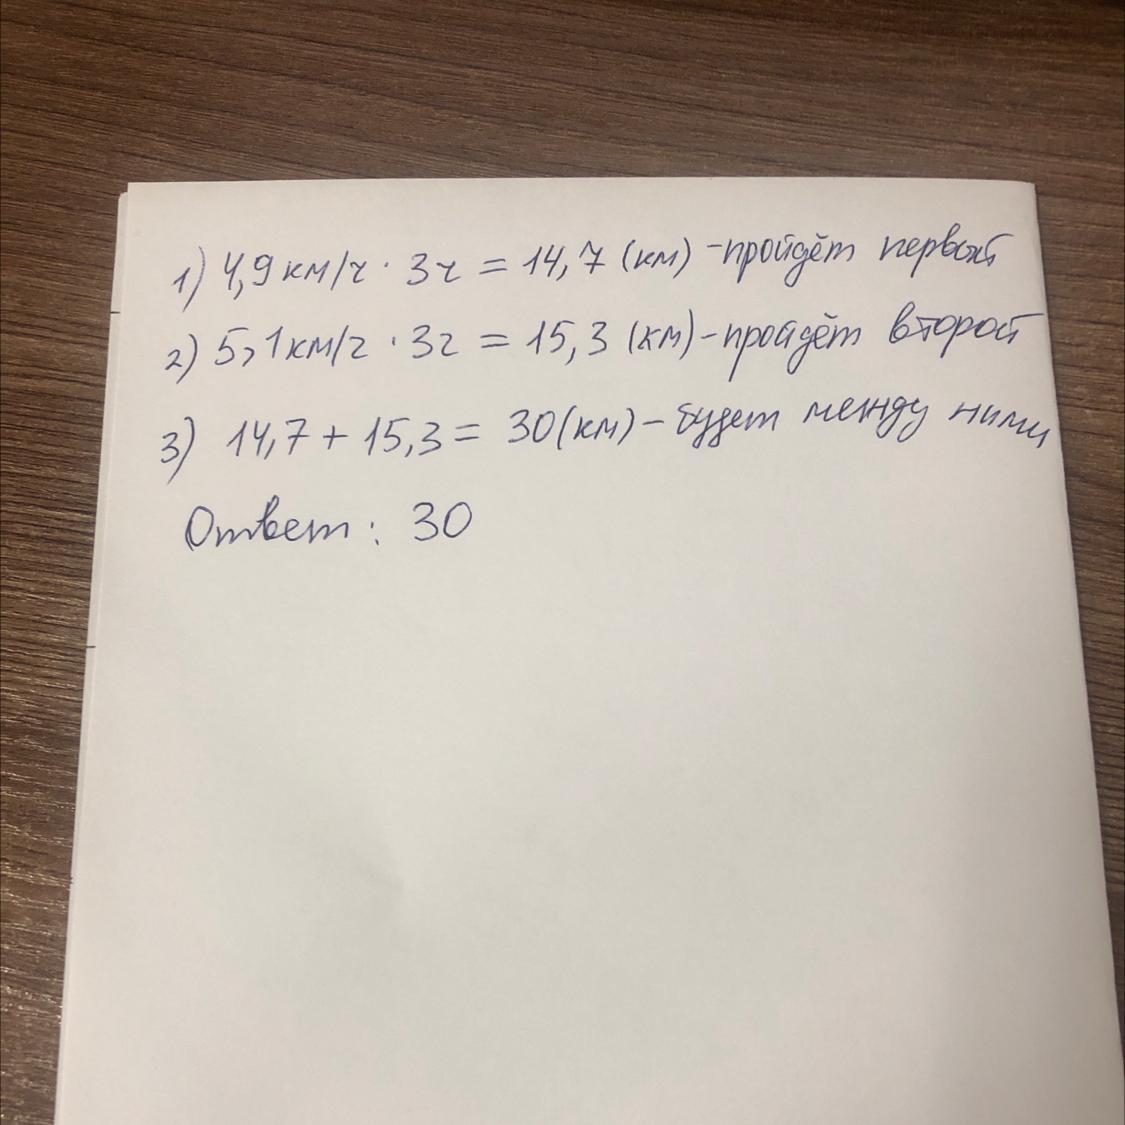 1) 4,9 км/ч · 3ч = 14,7 (км) - пройдёт первый
2) 5,1 км/ч · 3ч = 15,3 (км) - пройдёт второй
3) 14,7 + 15,3 = 30 (км) - будет между ними
Ответ : 30